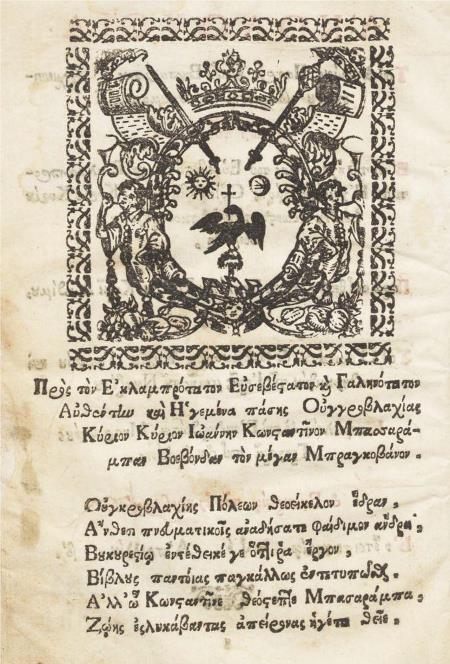 Πρὸς τὸν Ἐκλαμπρότατον Εὐσεβέστατον κỳ Γαληνότατον
Αὐθέντην καὶ Ἡγεμόνα πάσης Οὐγγροβλαχίας
Κύριον Κύριον Ἰωάννην Κωνσταντῖνον Μπασαρά-
μπαν Βοεβόνδαν τὸν μέγαν Μπραγκοβάνον.
Οὐγκροβλαχίης Πόλεων θεοείκελον ἕδραν,
Ἄνθεσι πνευματικοῖς ἀναδήσατε φαίδιμον ἄνδρα.
Βουκουρεστίῳ ἐντέθεικέ γε ἔργον,
Βίβλους παντοίας παγκάλλως ἐντετυπῶσθαι.
Ἀλλ' ὦ Κωνσταντῖνε Μπασαράμπα,
Ζωῆς ἐς λυκάβαντας ἀπείρονας